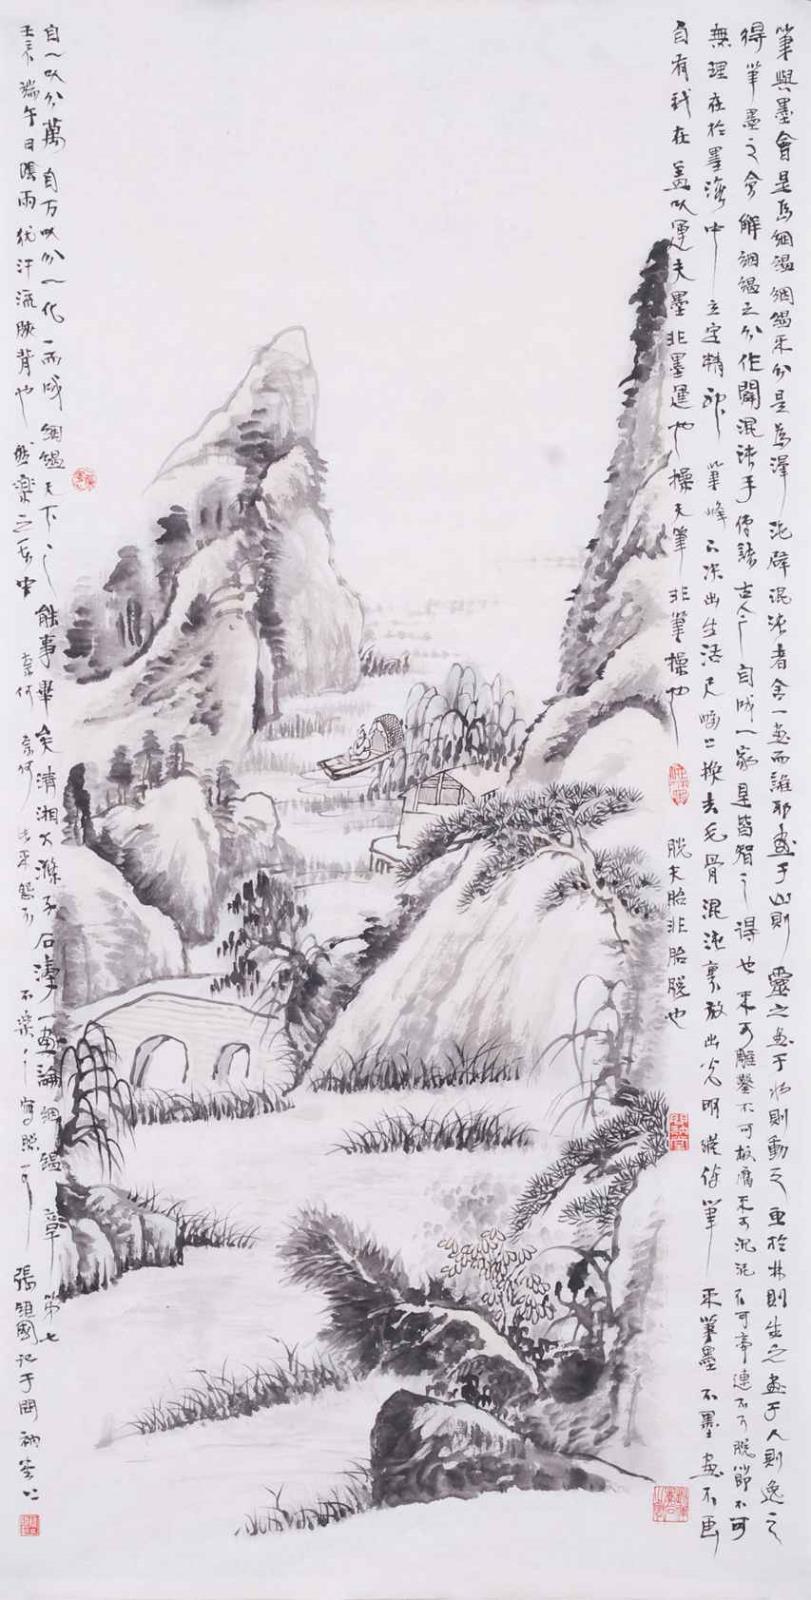 筆與墨會是為絪縕絪縕不分是為渾沌辟混沌者舍一畫而誰耶畫于山則靈之畫于水則動之畫於林則生之畫于人則逸之
得筆墨之會解絪縕之分作闢混沌手傳諸古今自成一家是皆智之得也不可雕鑿不可板腐不可沉泥不可牽連不可脫節不可
無理在於墨海中立定精神筆鋒下決出生活尺幅上換去毛骨混沌裏放出光明縱使筆不筆墨不墨畫不畫
自有我在蓋以運夫墨非墨運也操夫筆非筆操也脫夫胎非胎脫也
自一以分萬自万以分一化一而成絪縕天下之能事畢矣清湘大滌子石濤一畫論絪縕章第七
壬辰端午日陰雨犹汗流脥背也然樂之在中奈何奈何不樂之寫照張國記于